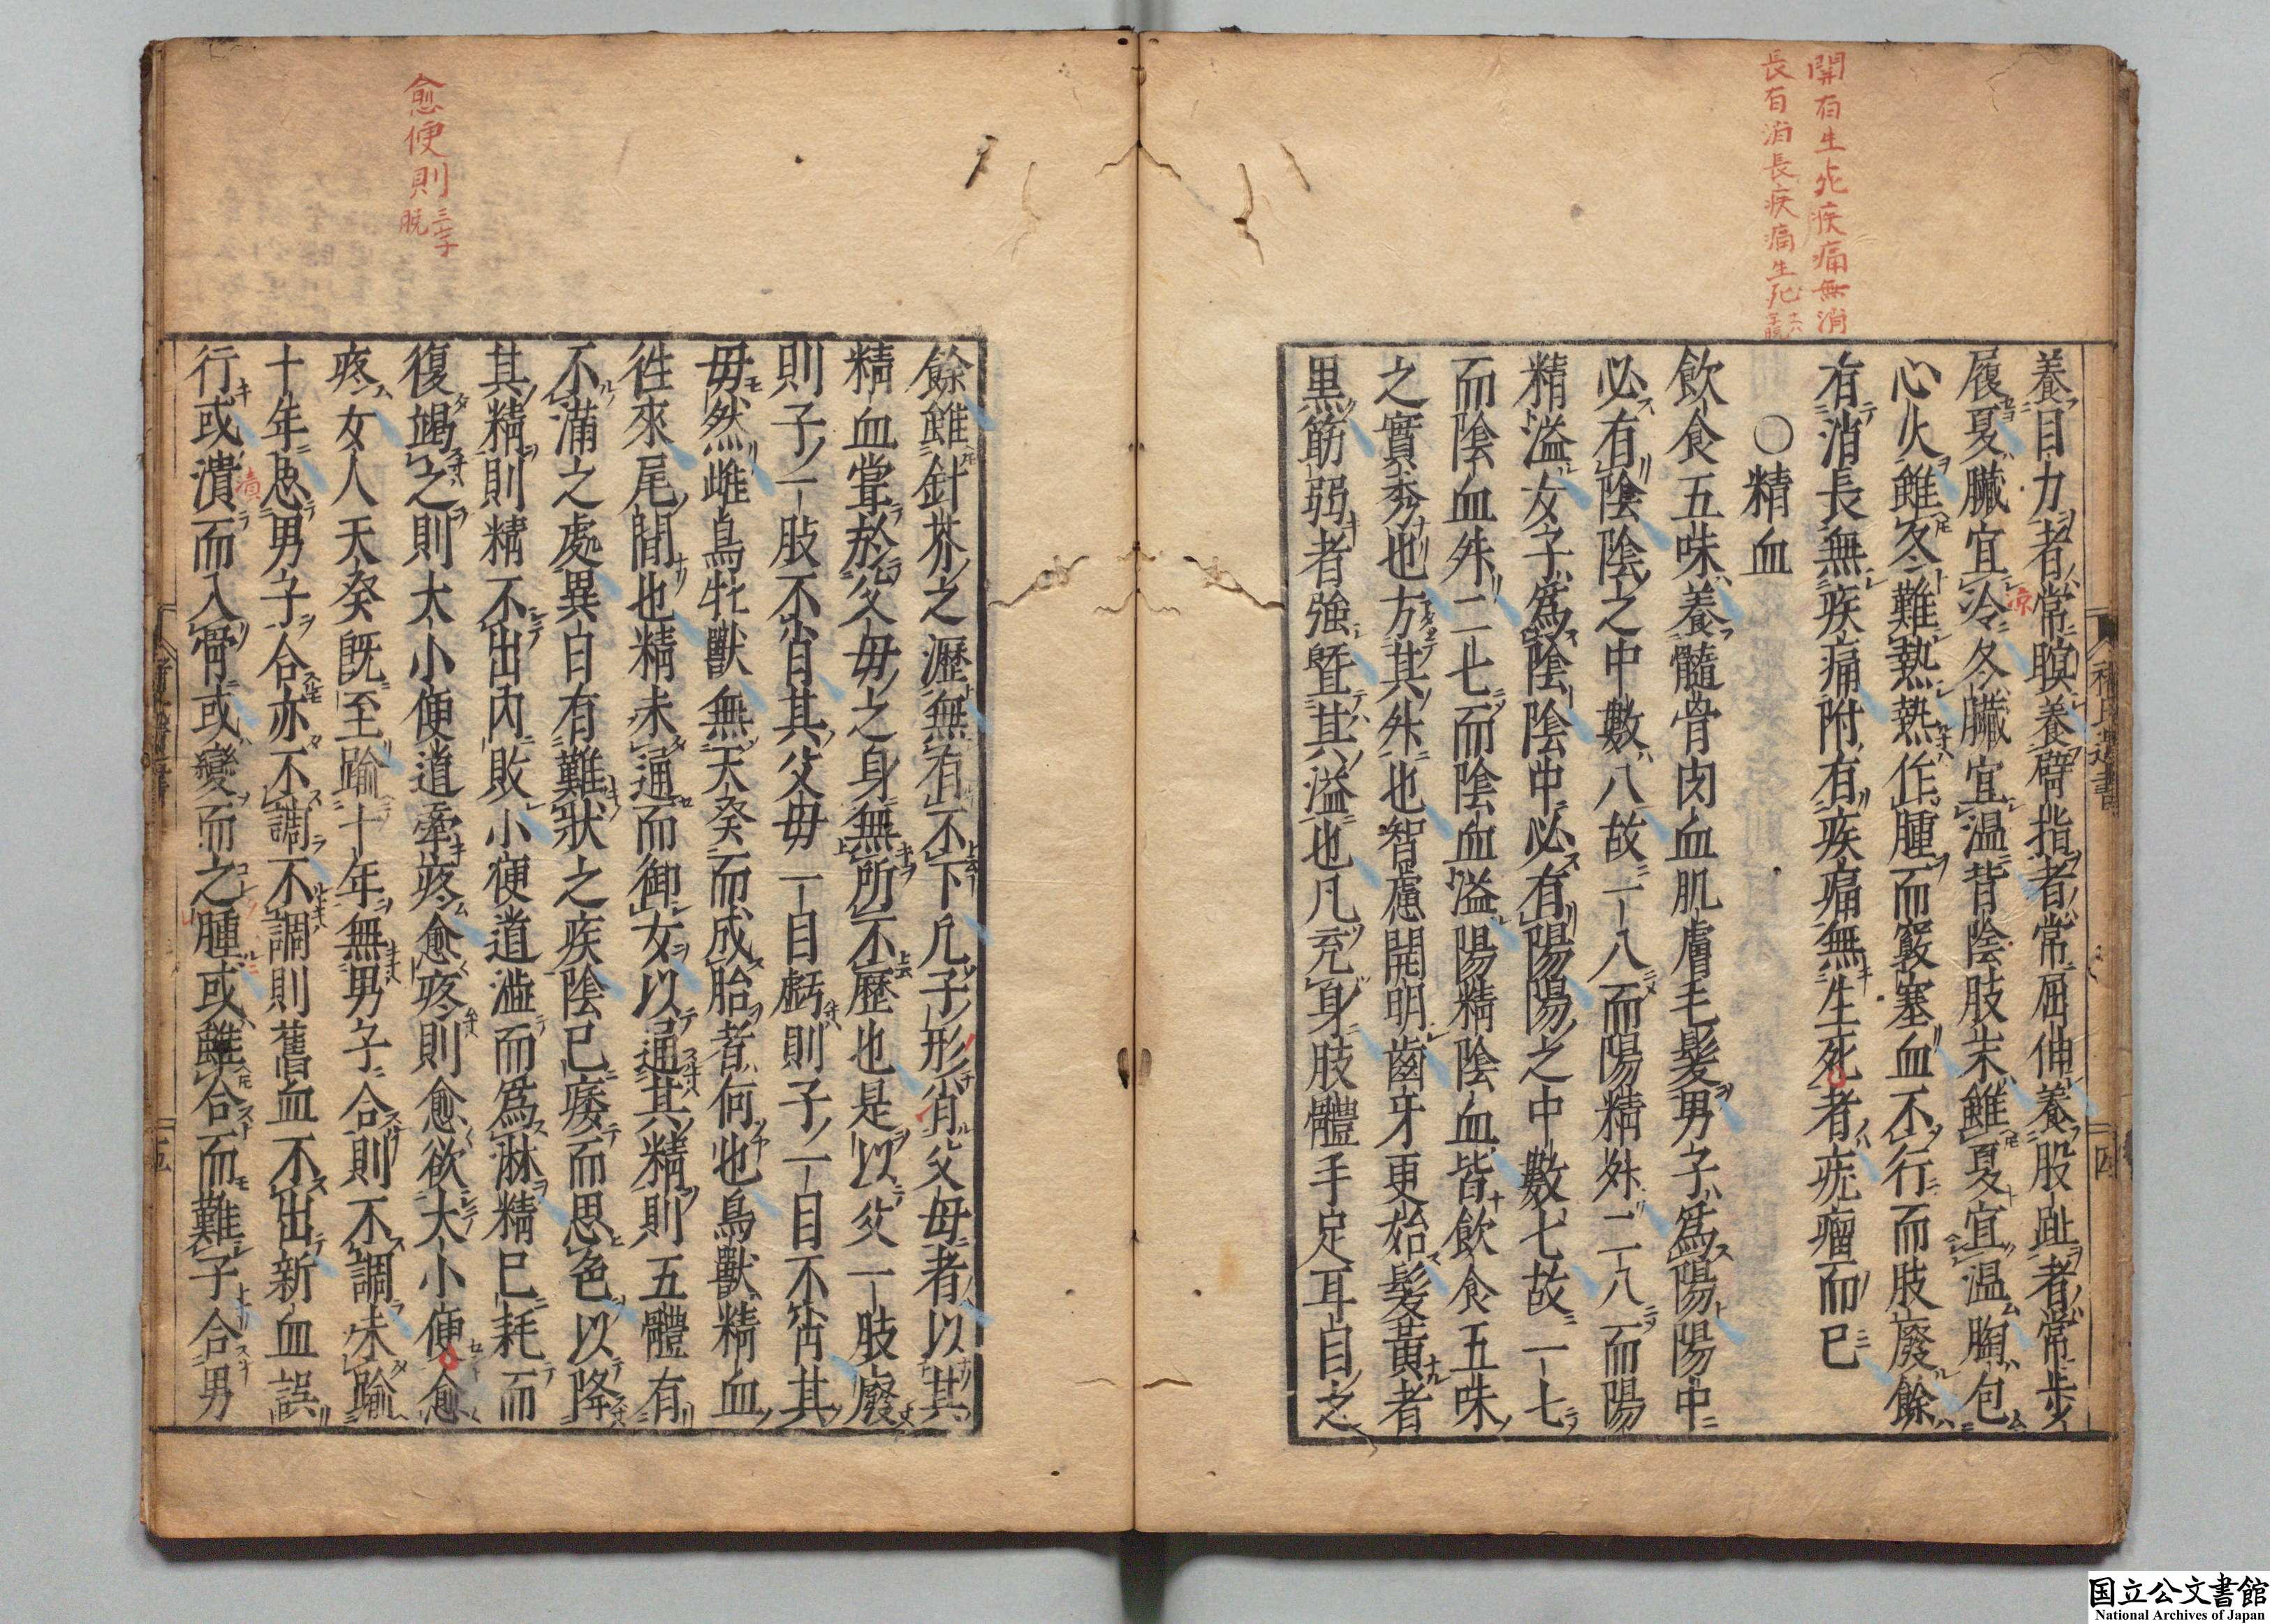 開有生死疾痛無消
長有消長疾痛生死
養目力者常瞑養臂指者常屈伸養股趾者常步
履夏臟宜冷冬臟宜温背陰肢末雖夏宜温胸包
凉
心火雖冬難熱熱作腫而竅塞血不行而肢廢餘
有消長無疾痛附有疾痛無生死者疣瘤而已
○精血
飲食五味養髓骨肉血肌膚毛髮男子爲陽陽中
必有陰陰之中數八故一八而陽精外二八而陽
精溢女子爲陰陰中必有陽陽之中數七故一七
而陰血外二七而陰血溢陽精陰血皆飲食五味
之實秀也方其外也智慮開明齒牙更始髮黃者
黑筋弱者強曁其溢也凡充身肢體手足耳目之
褚氏遺書
四
愈便則三字
脫
餘雖針芥之瀝無有不下凡子形肖父母者以其
精血甞於父母之身無所不歷也是以父一肢廢
則子一肢不肖其父母一目虧則子一目不肖其
毋然雌鳥牝獸無天癸而成胎者何也鳥獸精血
徃來尾間也精未通而御女以通其精則五體有
不滿之處異日有難狀之疾陰已痿而思色以降
其精則精不出內敗小便道澁而爲淋精已耗而
復竭之則大小便道牽疼愈疼則愈欲大小便愈
疼女人天癸既至踰十年無男子合則不調未踰
十年思男子合亦不調不調則舊血不出新血誤
行或潰而入骨或變而之腫或雖合而難子合男
五
国立公文書館
National Archives of Japan